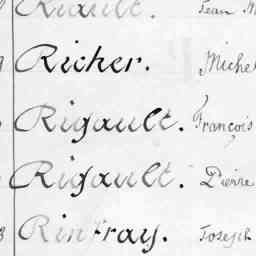 Riault. Jean M
Richer. Michel
Rigault. François
Rigault. Pierre
Rinfray. Joseph